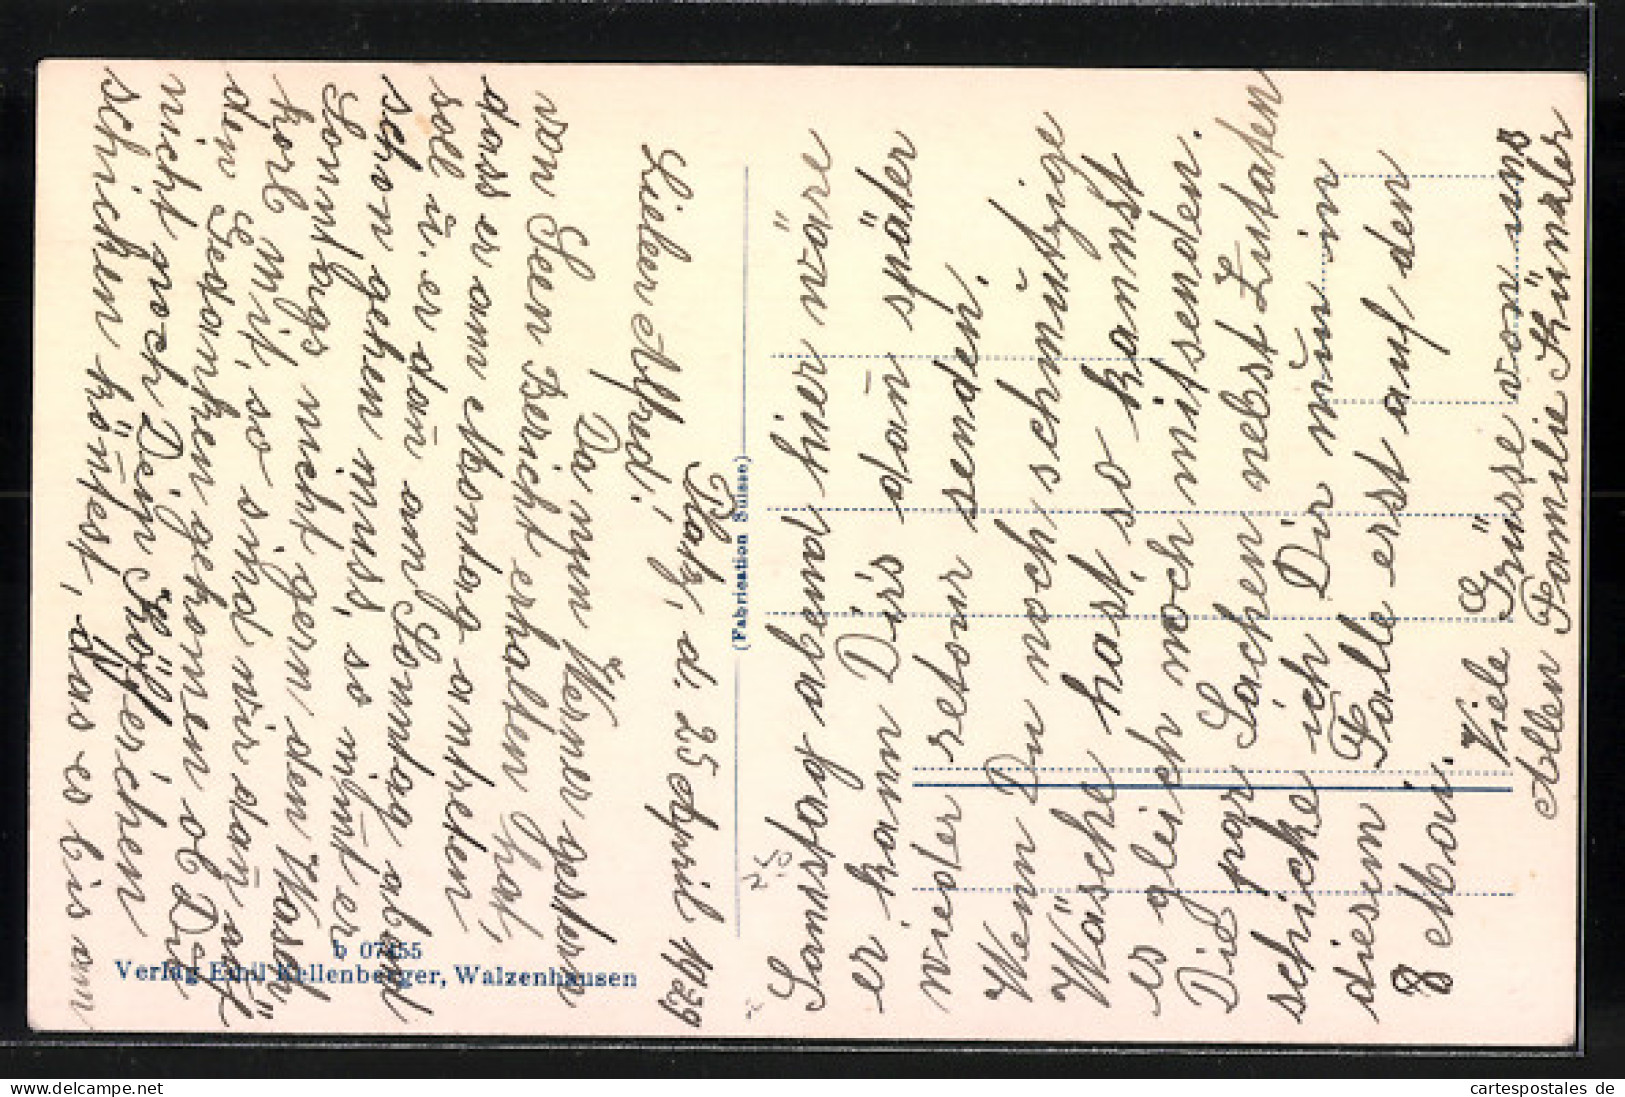 Platz, d. 25 April 1929
Lieber Alfred!
Da nun Werner gestern
von Seen Bericht erhalten hat,
dass er am Montag antreten
soll u. er dañ am Sonntag abend
schon gehen muss, so nim̄t er
Sonntags nicht gern den Wasch-
korb mit, so sind wir dañ auf
den Gedanken gekom̄en ob Du
nicht noch Dein Köfferchen
schicken kön̄test, das es bis am
Samstag abend hier wäre
er kann Dirs dañ später
wieder retour senden.
Wenn Du noch schmutzige
Wäsche hast, so kannst
es gleich noch mitsenden.
Die par Sachen nebst Zutaten
schicke ich Dir nun in
diesem Falle erst auf den
8 Mai.
Viele Grüsse von uns
Allen Familie Künzler
(Fabrication Suisse)
b 07455
Verlag Emil Kellenberger, Walzenhausen
cartespostales de